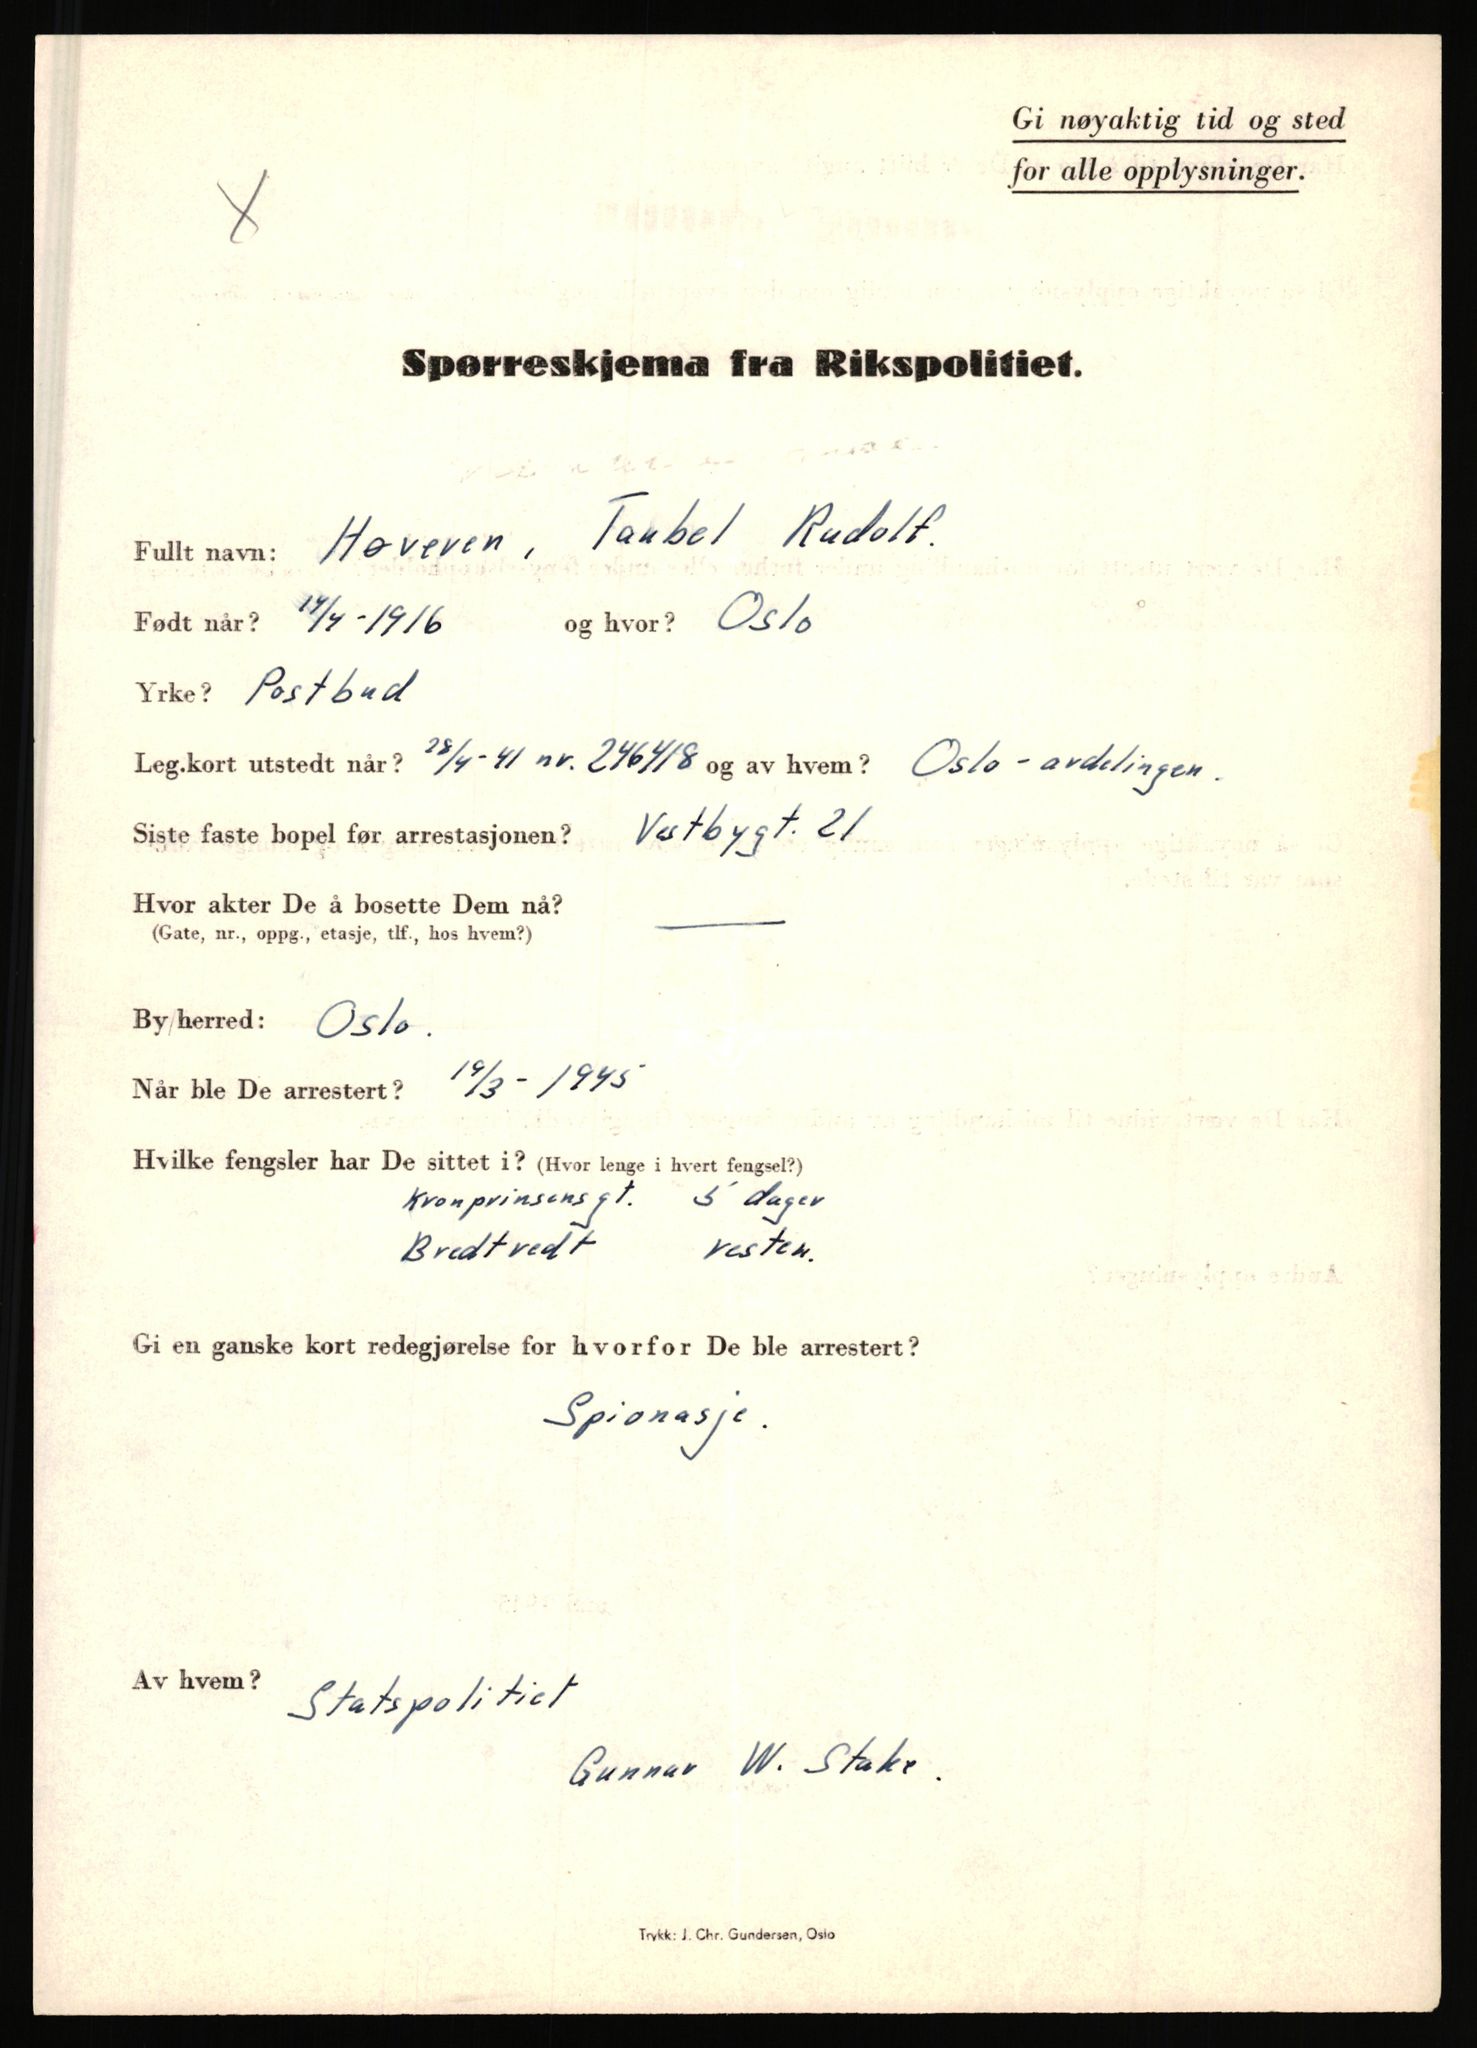 Gi nøyaktig tid og sted
for alle opplysninger.
Spørreskjema fra Rikspolitiet.
Fullt navn: Høveren, Taubel Rudolf.
Født når? 14/4-1916 og hvor? Oslo
Yrke? Postbud
Leg.kort utstedt når? 28/4-41 nr. 246418 og av hvem? Oslo-avdelingen.
Siste faste bopel før arrestasjonen? Vestbygt. 21
Hvor akter De å bosette Dem nå?
(Gate, nr., oppg., etasje, tlf., hos hvem?)
By/herred: Oslo.
Når ble De arrestert? 19/3-1945
Hvilke fengsler har De sittet i? (Hvor lenge i hvert fengsel?)
Kronprinsensgt. 5 dager
Bredtvedt resten.
Gi en ganske kort redegjørelse for hvorfor De ble arrestert?
Spionasje.
Av hvem? Statspolitiet
Gunnar W. Stake.
Trykk: J. Chr. Gundersen, Oslo